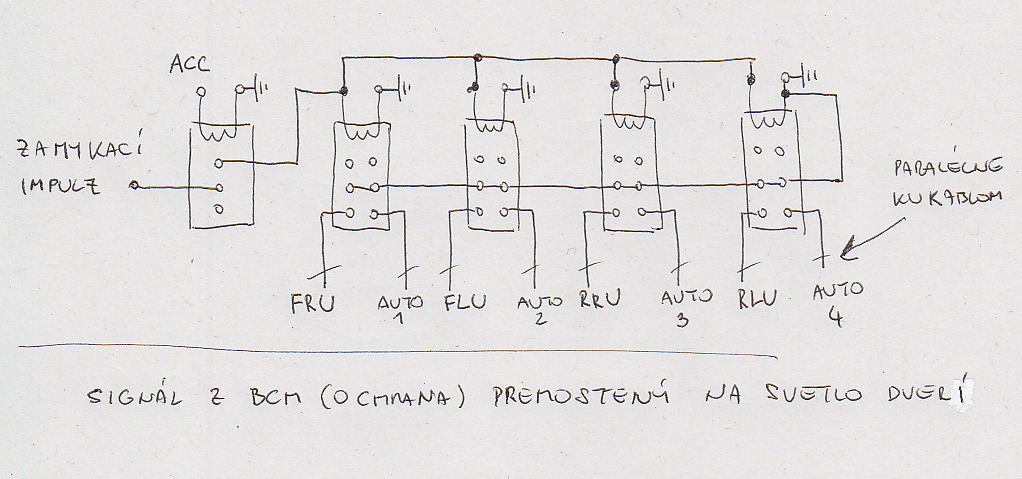 ACC
ZAMYKACÍ
IMPULZ
PARALÉLNE
KU KÁBLOM
FRU
AUTO
1
FLU
AUTO
2
RRU
AUTO
3
RLU
AUTO
4
SIGNÁL Z BCM (OCHRANA) PREMOSTENÝ NA SVETLO DVERÍ